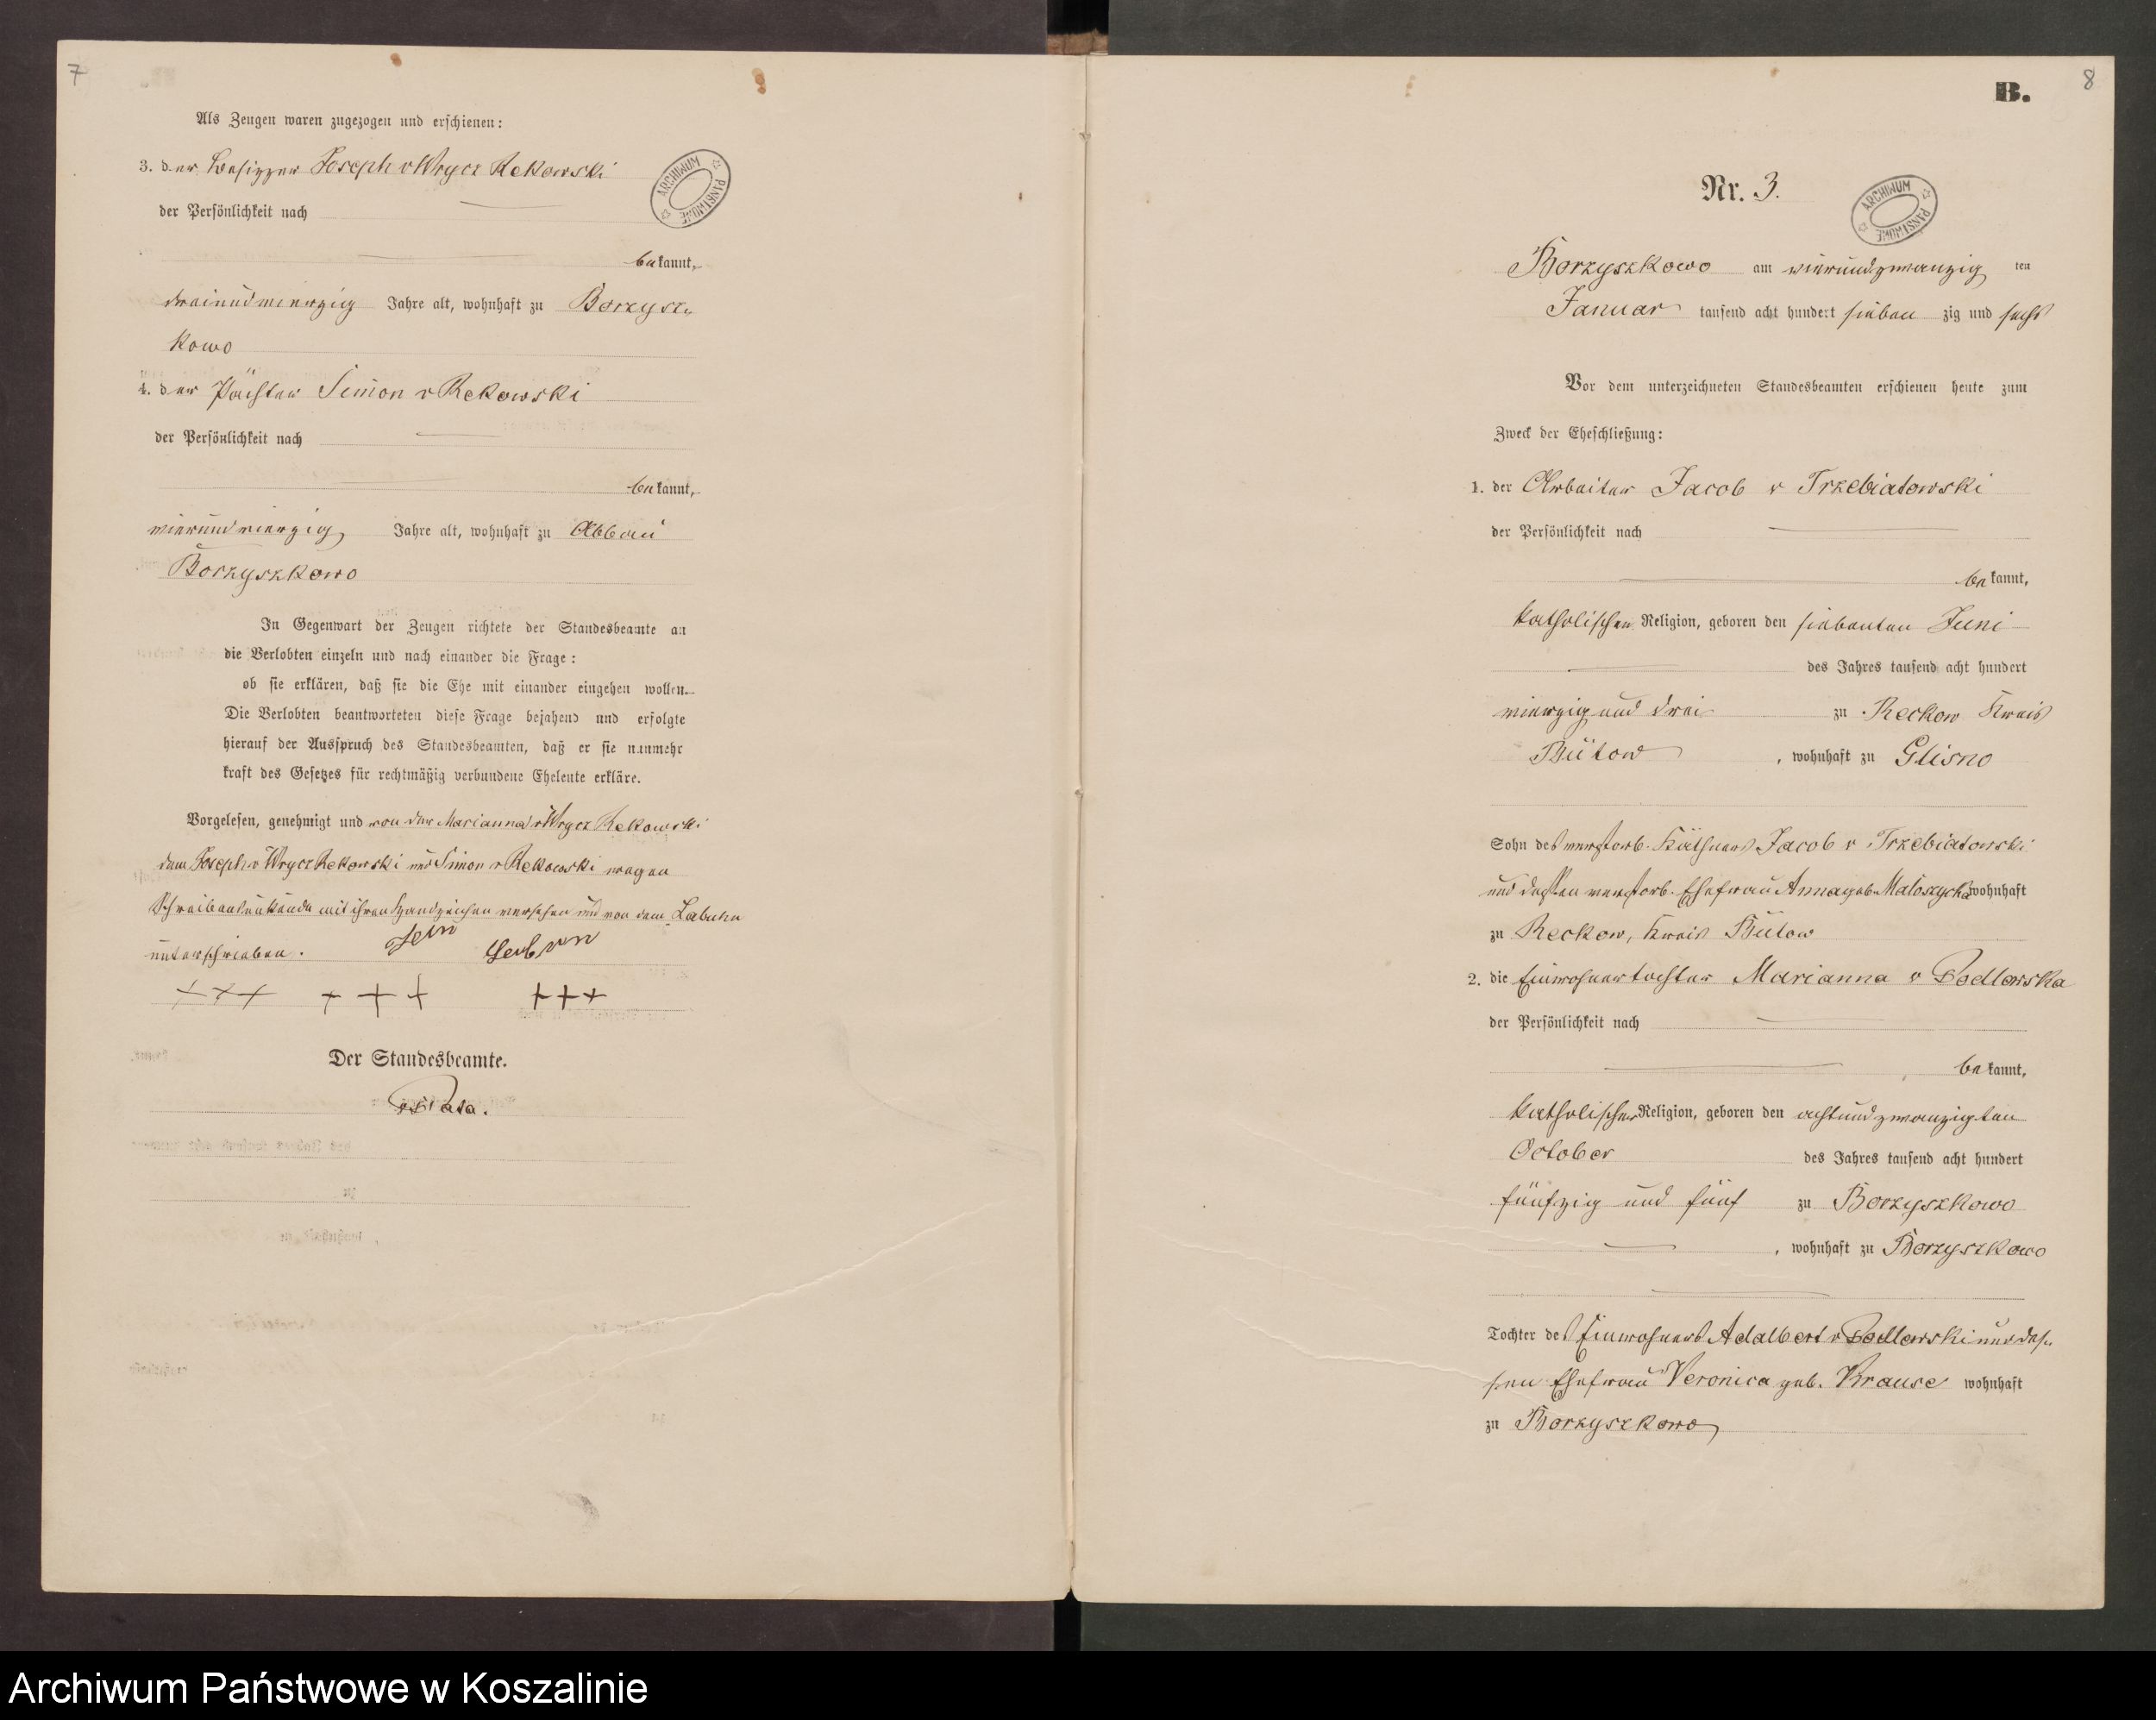 7
Als Zeugen waren zugezogen und erschienen:
3. der Besitzer Joseph v Wrycz Rekowski
der Persönlichkeit nach
bekannt,
dreiundvierzig Jahre alt, wohnhaft zu Borzysz-
kowo
4. der Pächter Simon v Rekowski
der Persönlichkeit nach
bekannt,
vierundvierzig Jahre alt, wohnhaft zu Abbau
Borzyszkowo
In Gegenwart der Zeugen richtete der Standesbeamte an
die Verlobten einzeln und nach einander die Frage:
ob sie erklären, daß sie die Ehe mit einander eingehen wollen.
Die Verlobten beantworteten diese Frage bejahend und erfolgte
hierauf der Ausspruch des Standesbeamten, daß er sie nunmehr
kraft des Gesetzes für rechtmäßig verbundene Eheleute erkläre.
Vorgelesen, genehmigt und von der Marianna v Wrycz Rekowski
dem Joseph v Wrycz Rekowski und Simon v Rekowski wegen
Schreibensunkunde mit ihren Handzeichen versehen und von dem Labuhn
unterschrieben.
+++ +++ +++
Der Standesbeamte.
ARCHIWUM PAŃSTWOWE
B.
8
Nr. 3.
ARCHIWUM PAŃSTWOWE
Borzyszkowo am vierundzwanzig ten
Januar tausend acht hundert sieben zig und sechs
Vor dem unterzeichneten Standesbeamten erschienen heute zum
Zweck der Eheschließung:
1. der Arbeiter Jacob v Trzebiatowski
der Persönlichkeit nach
bekannt,
katholischer Religion, geboren den siebenten Juni
des Jahres tausend acht hundert
vierzig und drei zu Reckow Kreis
Bütow, wohnhaft zu Glisno
Sohn des verstorb. Käthners Jacob v Trzebiatowski
und dessen verstorb. Ehefrau Anna geb. Maloszycka wohnhaft
zu Reckow, Kreis Bütow
2. die Einwohnertochter Marianna v Podlewska
der Persönlichkeit nach
bekannt,
katholischer Religion, geboren den achtundzwanzigsten
October des Jahres tausend acht hundert
fünfzig und fünf zu Borzyszkowo
, wohnhaft zu Borzyszkowo
Tochter des Einwohners Adalbert v Podlewski und des-
sen Ehefrau Veronica geb. Krause wohnhaft
zu Borzyszkowo
Archiwum Państwowe w Koszalinie